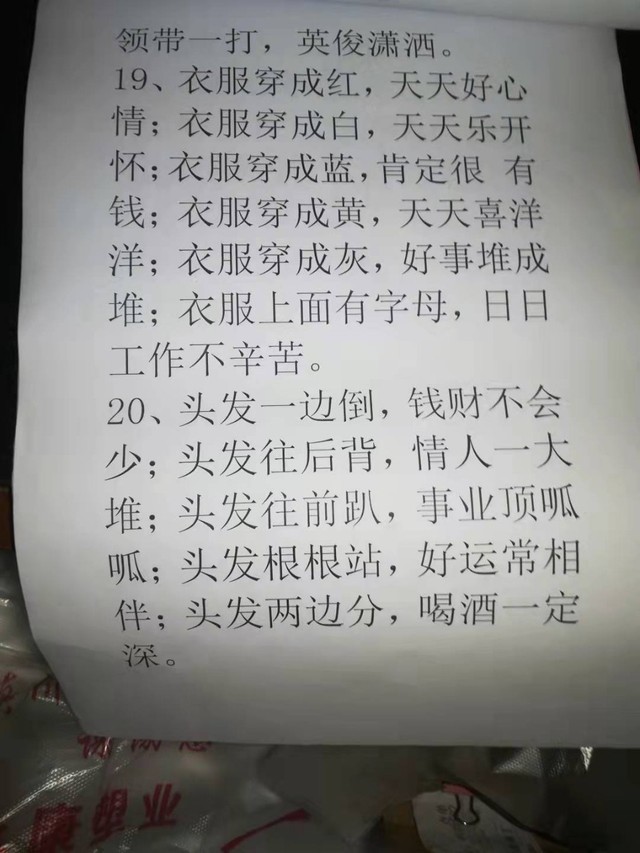 领带一打，英俊潇洒。
19、衣服穿成红，天天好心
情；衣服穿成白，天天乐开
怀；衣服穿成蓝，肯定很 有
钱；衣服穿成黄，天天喜洋
洋；衣服穿成灰，好事堆成
堆；衣服上面有字母，日日
工作不辛苦。
20、头发一边倒，钱财不会
少；头发往后背，情人一大
堆；头发往前趴，事业顶呱
呱；头发根根站，好运常相
伴；头发两边分，喝酒一定
深。
康塑业